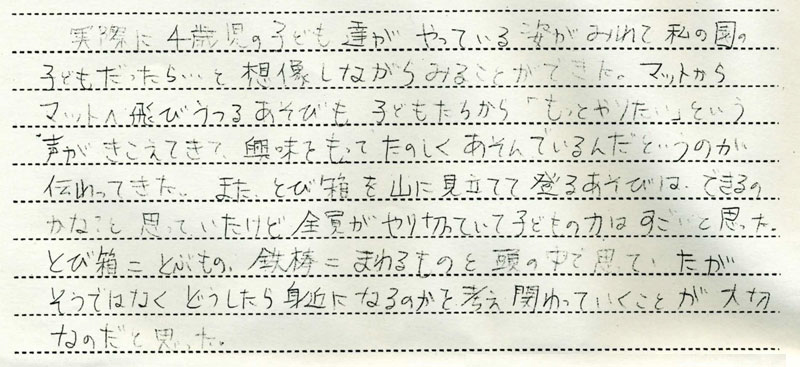 実際に4歳児の子ども達がやっている姿がみれて私の園の
子どもだったら…と想像しながらみることができた。マットから
マットへ飛びうつるあそびも子どもたちから「もっとやりたい」という
声がきこえてきて、興味をもってたのしくあそんでいるんだというのが
伝わってきた。また、とび箱を山に見立てて登るあそびは、できるの
かなぁと思っていたけど全員がやり切っていて子どもの力はすごいと思った。
とび箱=とぶもの、鉄棒=まわるものと頭の中で思っていたが
そうではなくどうしたら身近になるのかを考え関わっていくことが大切
なのだと思った。